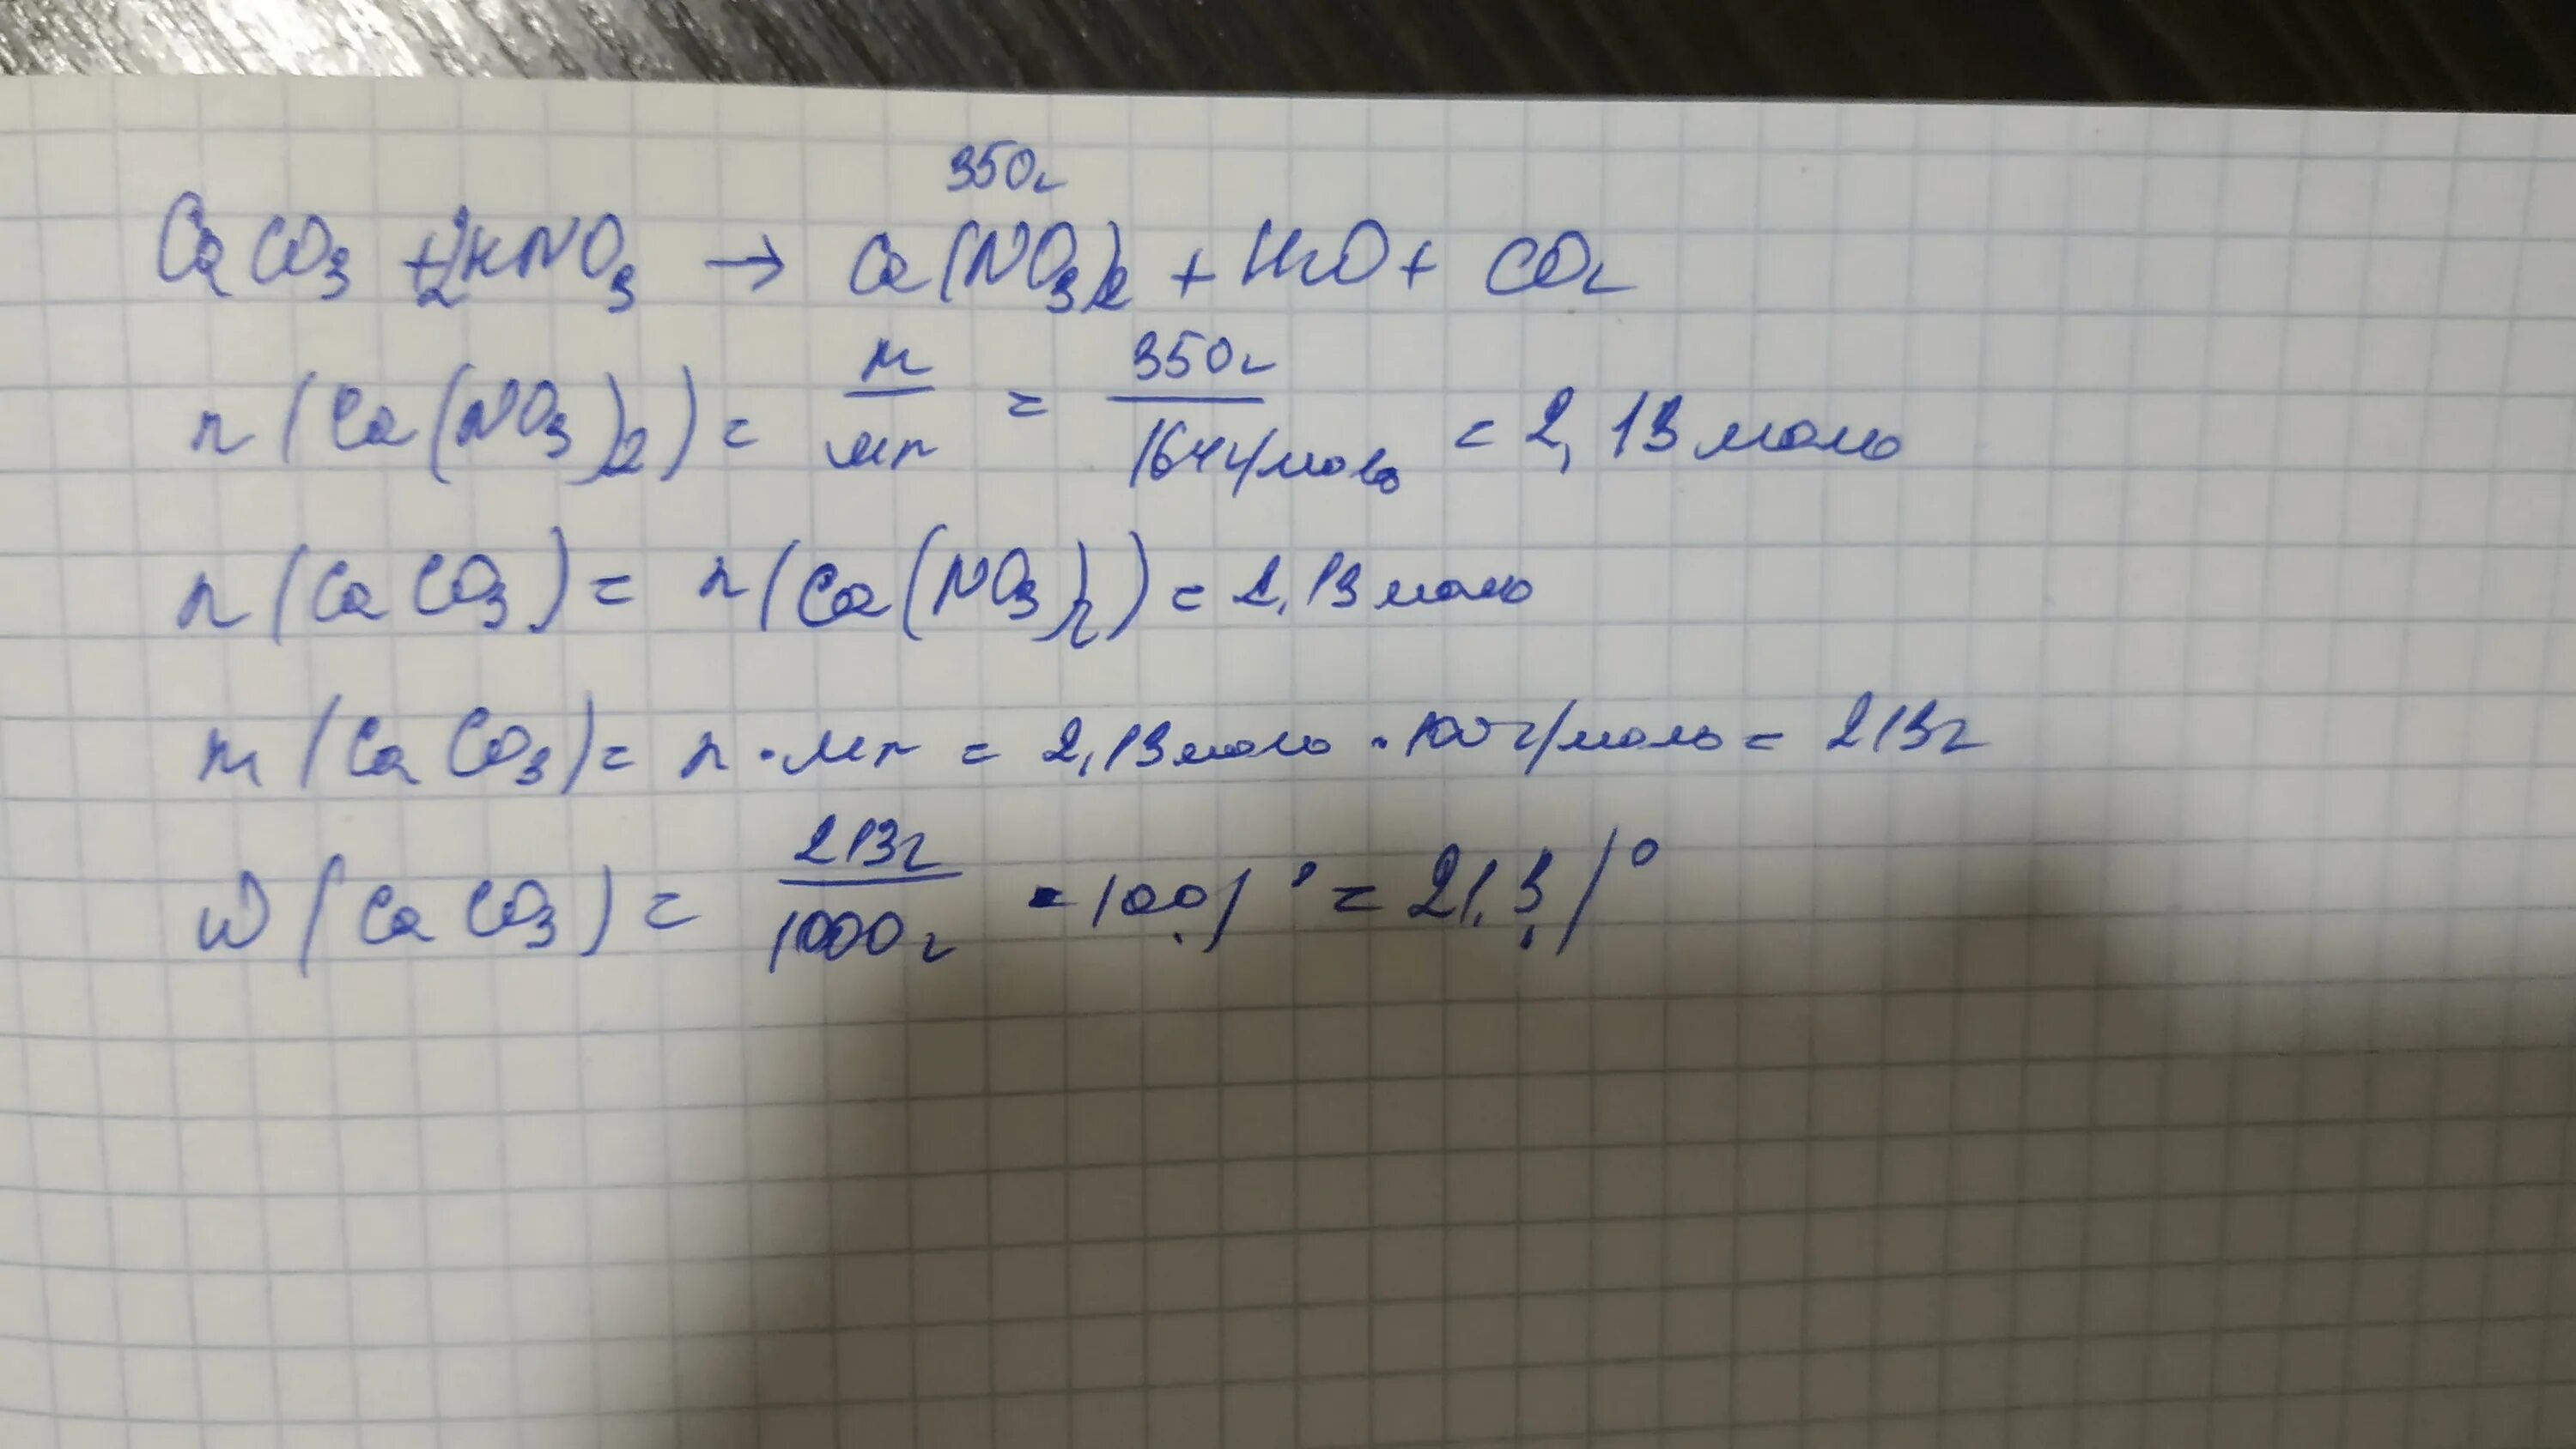 350г
CaCO3 + 2HNO3 → Ca(NO3)2 + H2O + CO2
n(Ca(NO3)2) = m/Mr = 350г/164г/моль = 2,13 моль
n(CaCO3) = n(Ca(NO3)2) = 2,13 моль
m(CaCO3) = n · Mr = 2,13 моль · 100 г/моль = 213г
W(CaCO3) = 213г/1000г · 100% = 21,3%